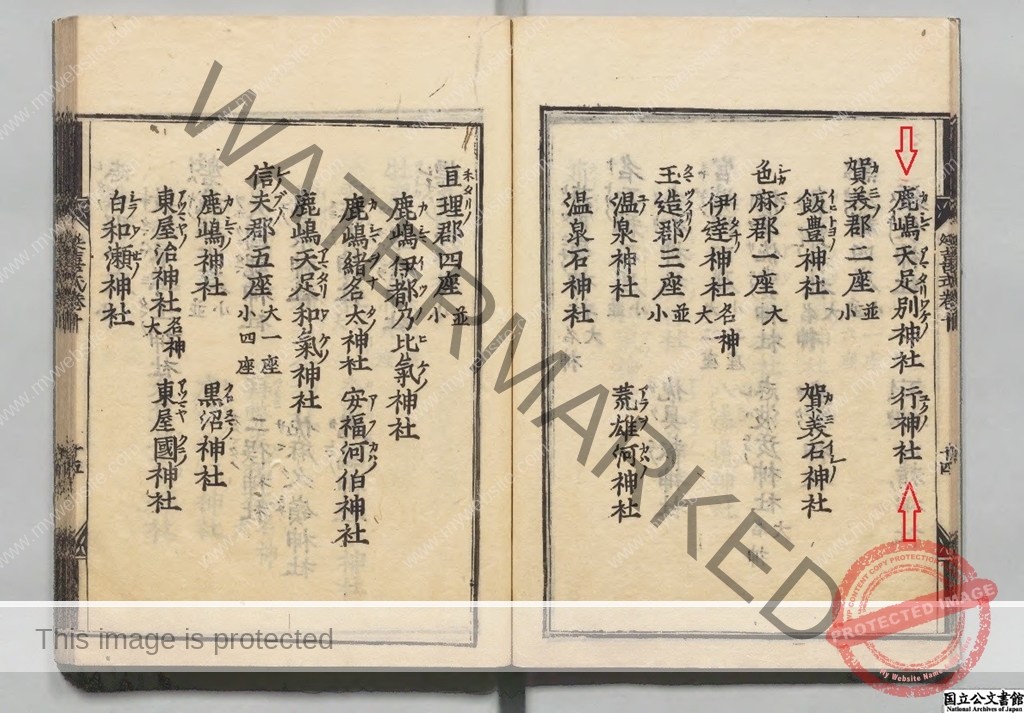 鹿嶋天足別神社 行神社
賀美郡二座並小
飯豊神社 賀美石神社
色麻郡一座大
伊達神社名神大
玉造郡三座並小
温泉神社 荒雄河神社
温泉石神社
亘理郡四座並小
鹿嶋伊都乃比氣神社
鹿嶋緒名太神社 安福河伯神社
鹿嶋天足和氣神社
信夫郡五座大一座小四座
鹿嶋神社 黒沼神社
東屋沼神社名神大 東屋國神社
白和瀬神社
延喜式巻十
十五
WATERMARKED
This image is protected
PROTECTED IMAGE
My Website Name
www.mywebsite.com
国立公文書館
National Archives of Japan